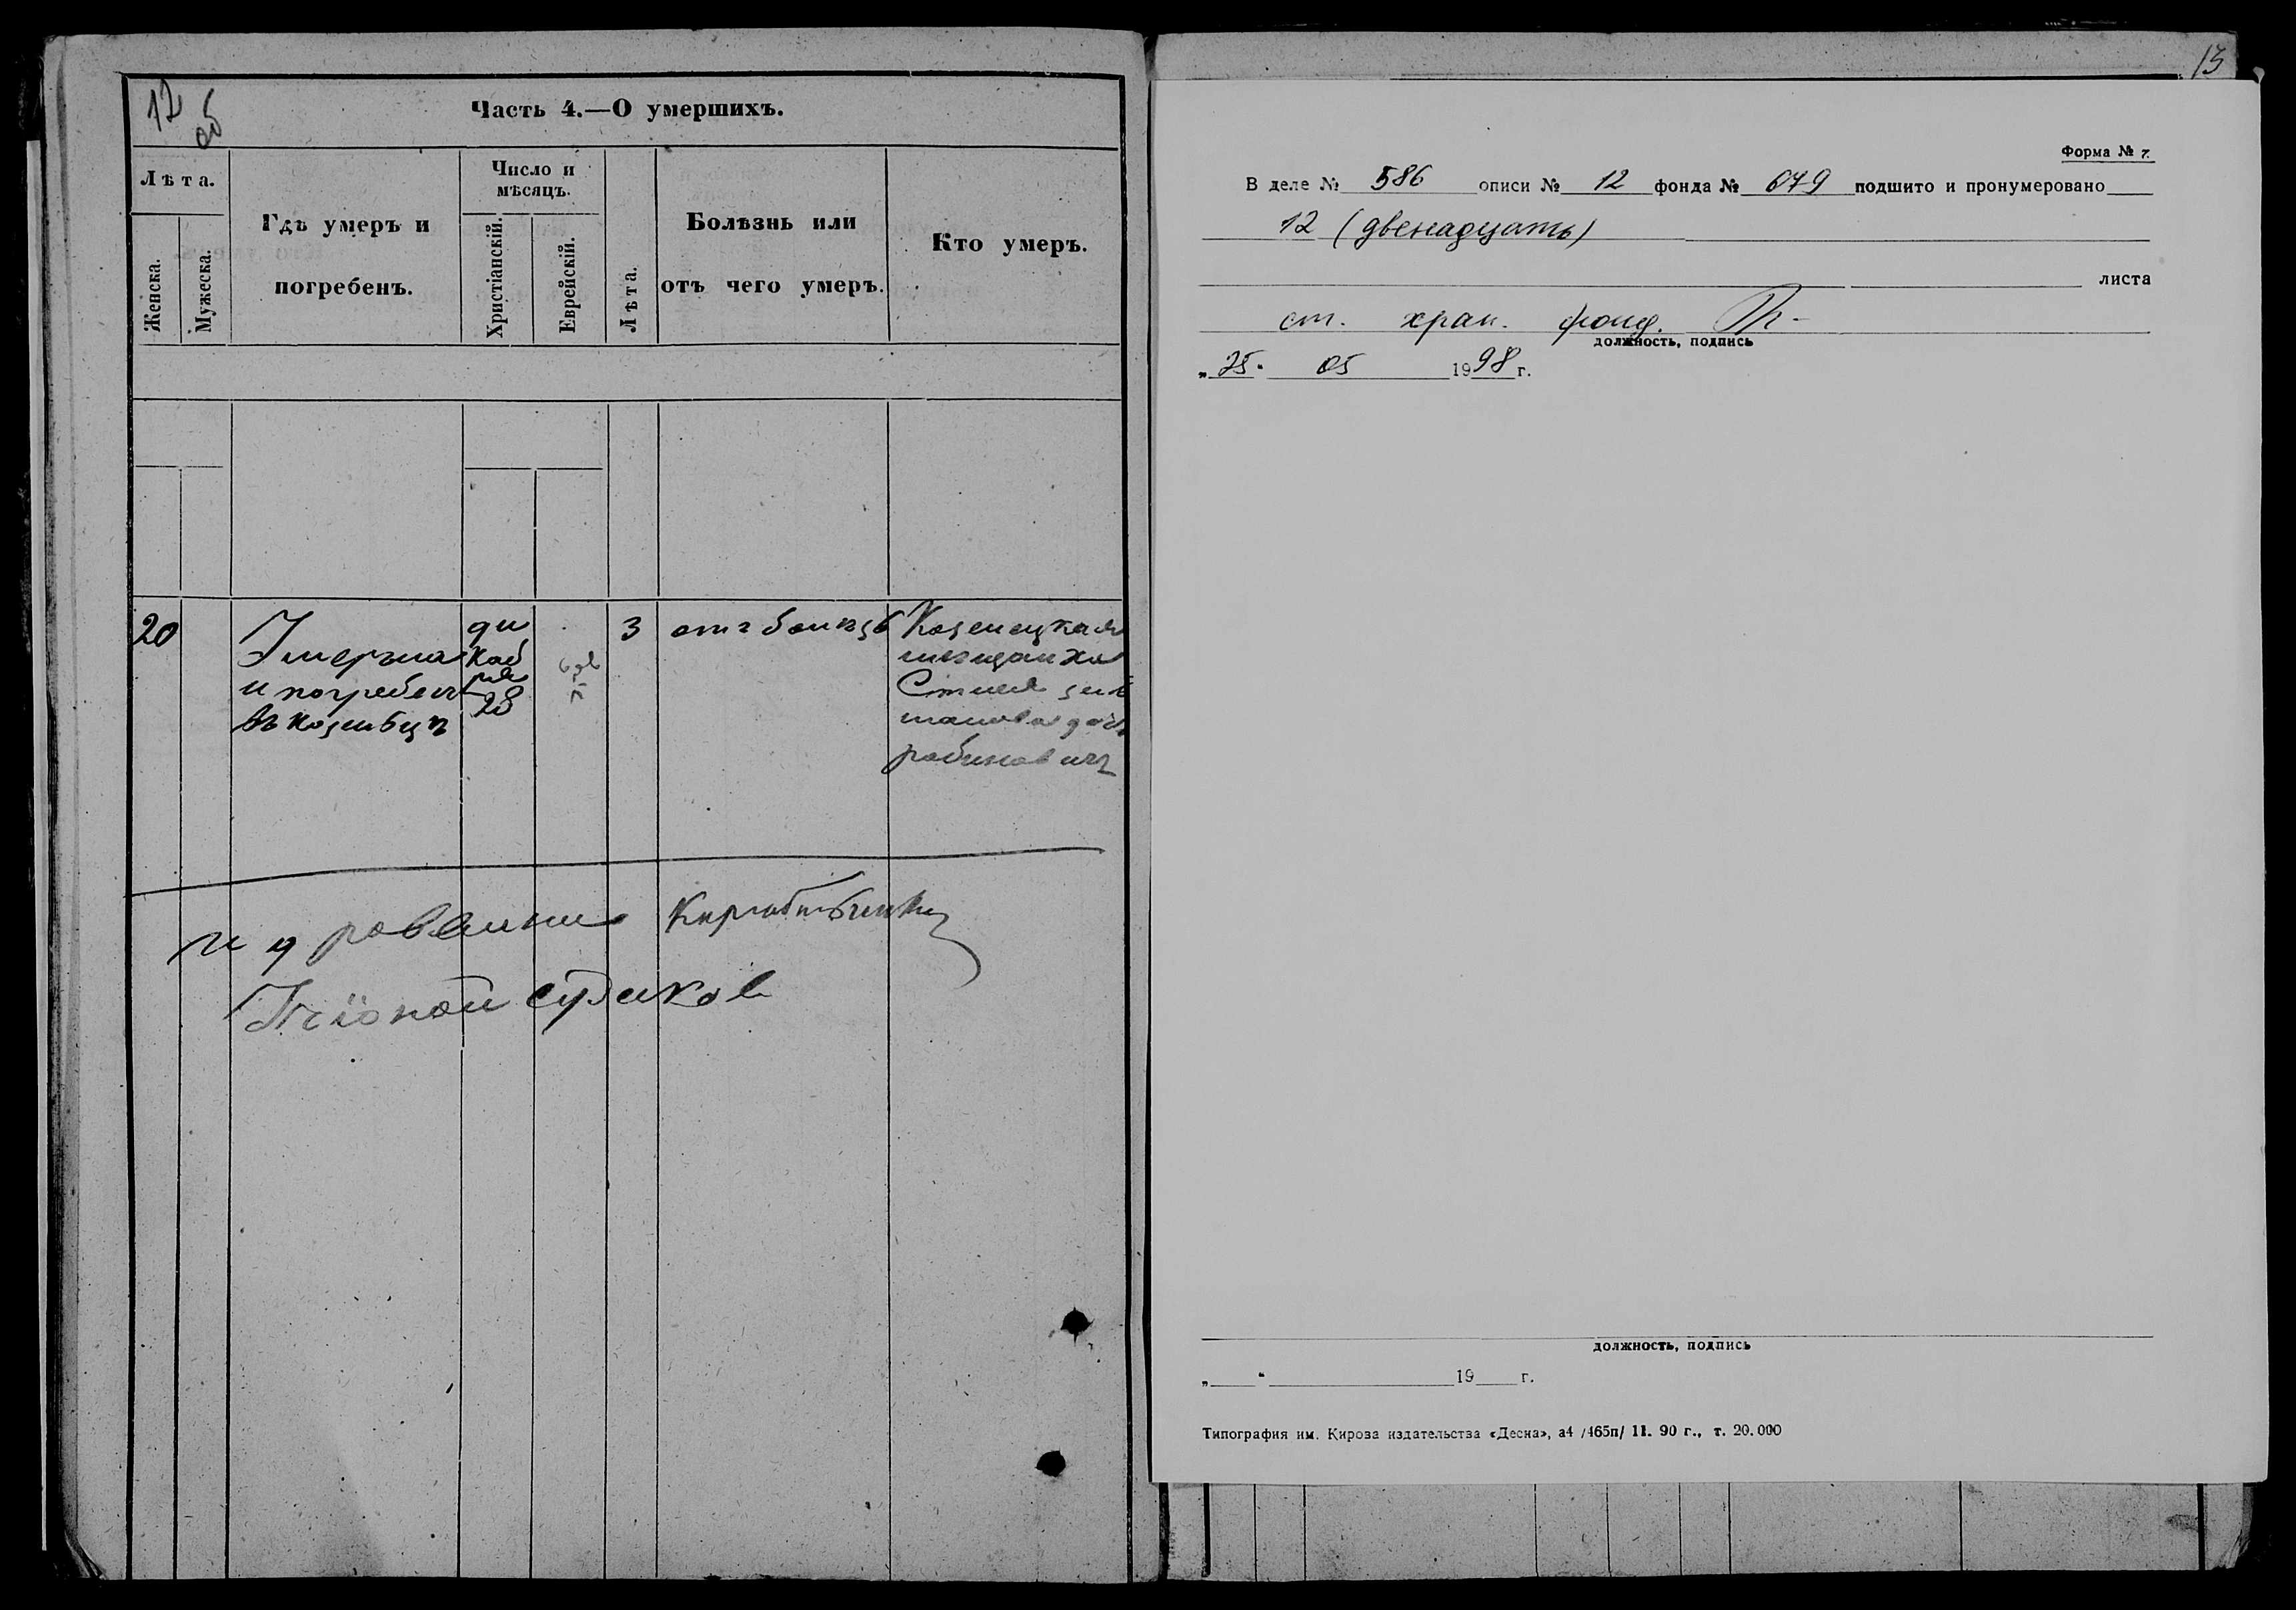 12 об
Часть 4.—О умершихъ.
Лѣта.
Женска.
Мужеска.
Гдѣ умеръ и
погребенъ.
Число и
мѣсяцъ.
Христіанскій.
Еврейскій.
Лѣта.
Болѣзнь или
отъ чего умеръ.
Кто умеръ.
20
Умеръла
и погребен
въ
ди
каб
ря
28
3
отъ
Козелецкая
мѣщанка
дочь
рабинович
и д раввина
13
Форма № 7.
В деле № 586 описи № 12 фонда № 679 подшито и пронумеровано
12 (двенадцать)
листа
ст. хран. фонд.
должность, подпись
„25“ 05 1998 г.
должность, подпись
„ “ 19 г.
Типография им. Кирова издательства «Десна», а4 /465п/ 11. 90 г., т. 20.000